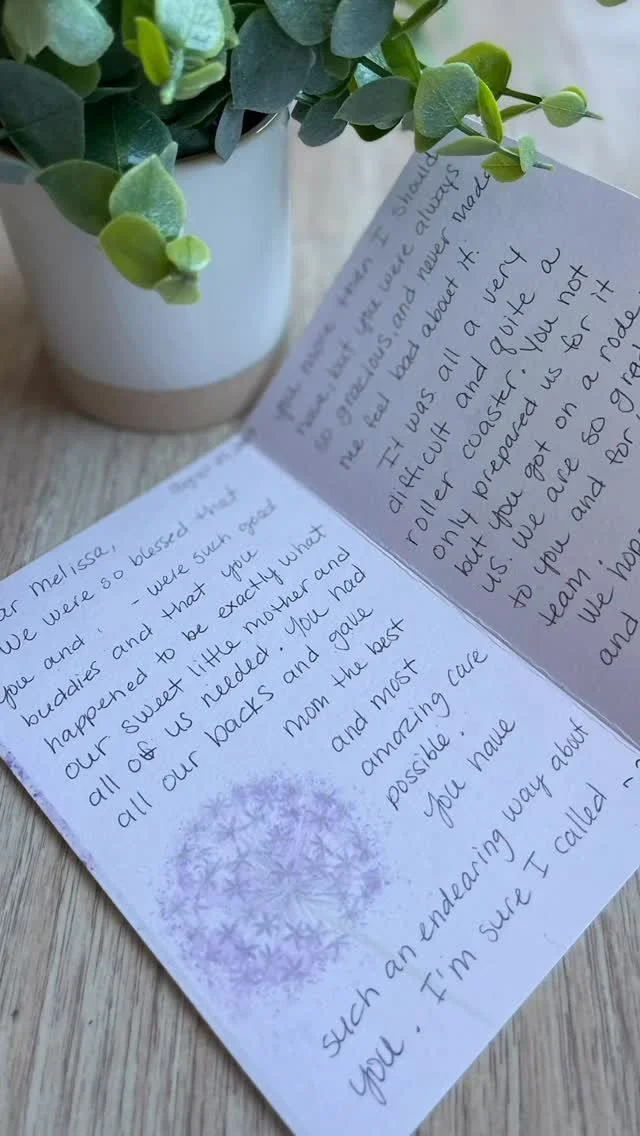 ar Melissa,
We were so blessed that
you and - were such good
buddies and that you
happened to be exactly what
our sweet little mother and
all of us needed. You had
all our backs and gave
mom the best
and most
amazing care
possible.
You have
such an endearing way about
you. I'm sure I called
you more then I should
have, but you were always
so gracious, and never made
me feel bad about it.
It was all a very
difficult and quite a
roller coaster. You not
only prepared us for it
but you got on a rode
us. We are so
to you and for
team.
We hop
and